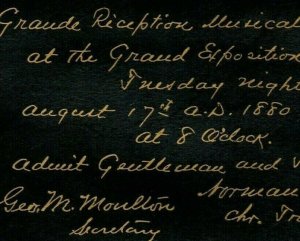 Grande Reception Musical
at the Grand Exposition
Tuesday night
August 17th A.D. 1880
at 8 O'Clock.
Admit Gentleman and
Geo. M. Moulton Norman
Secretary Chr.